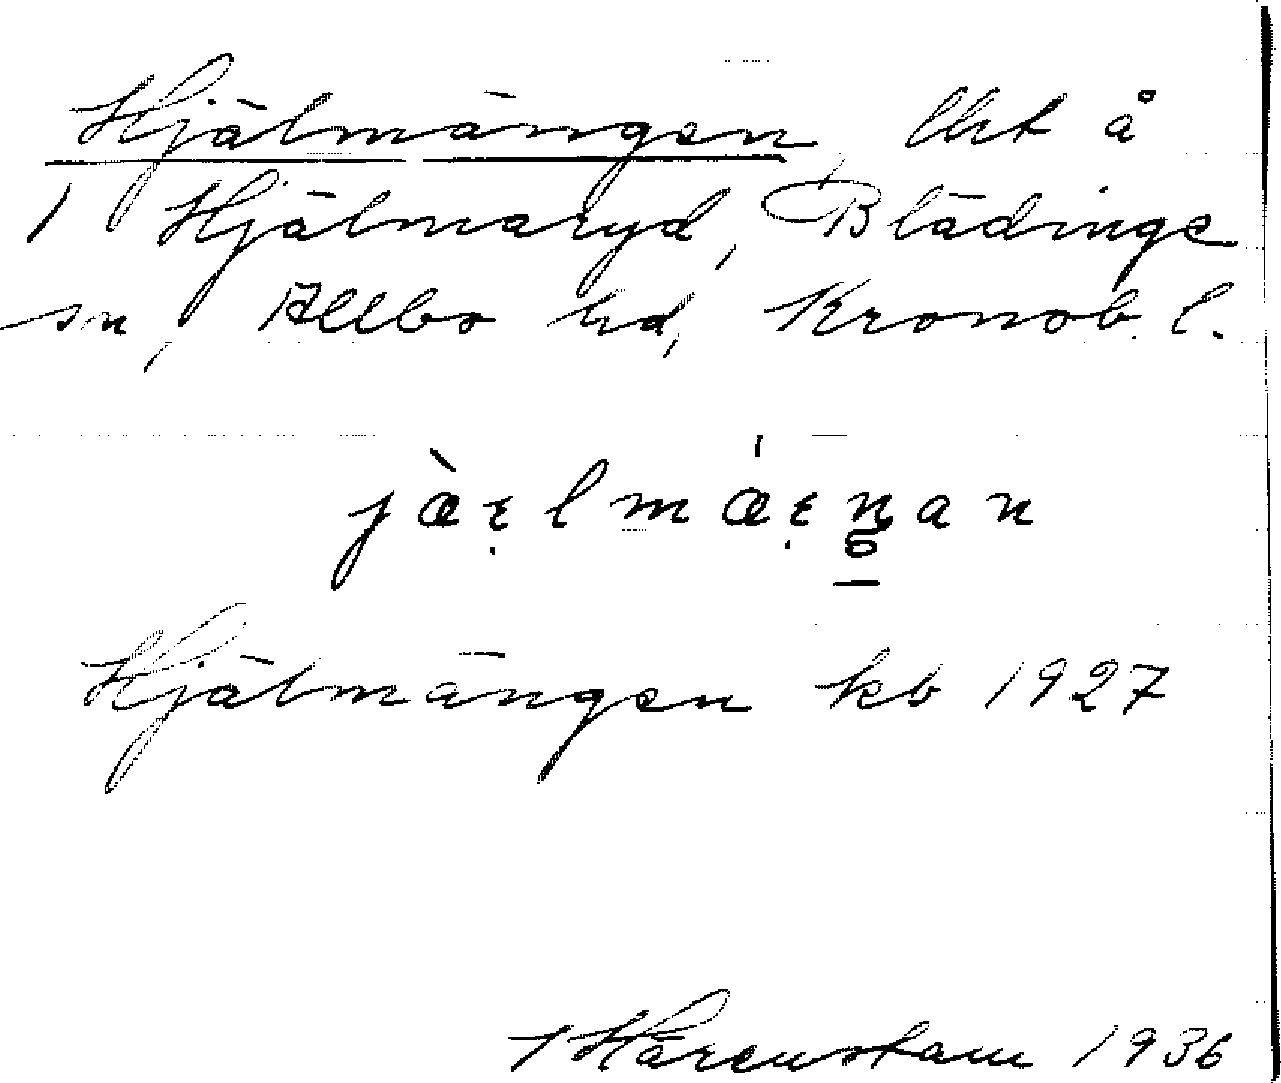 Hjälmängen, lht å
1 Hjälmaryd, Blädinge
sn, Allbo hd, Kronob. l.
jæ̀ɛ̣lmǽɛ̣ŋan
Hjälmängen kb 1927
Härenstam 1936